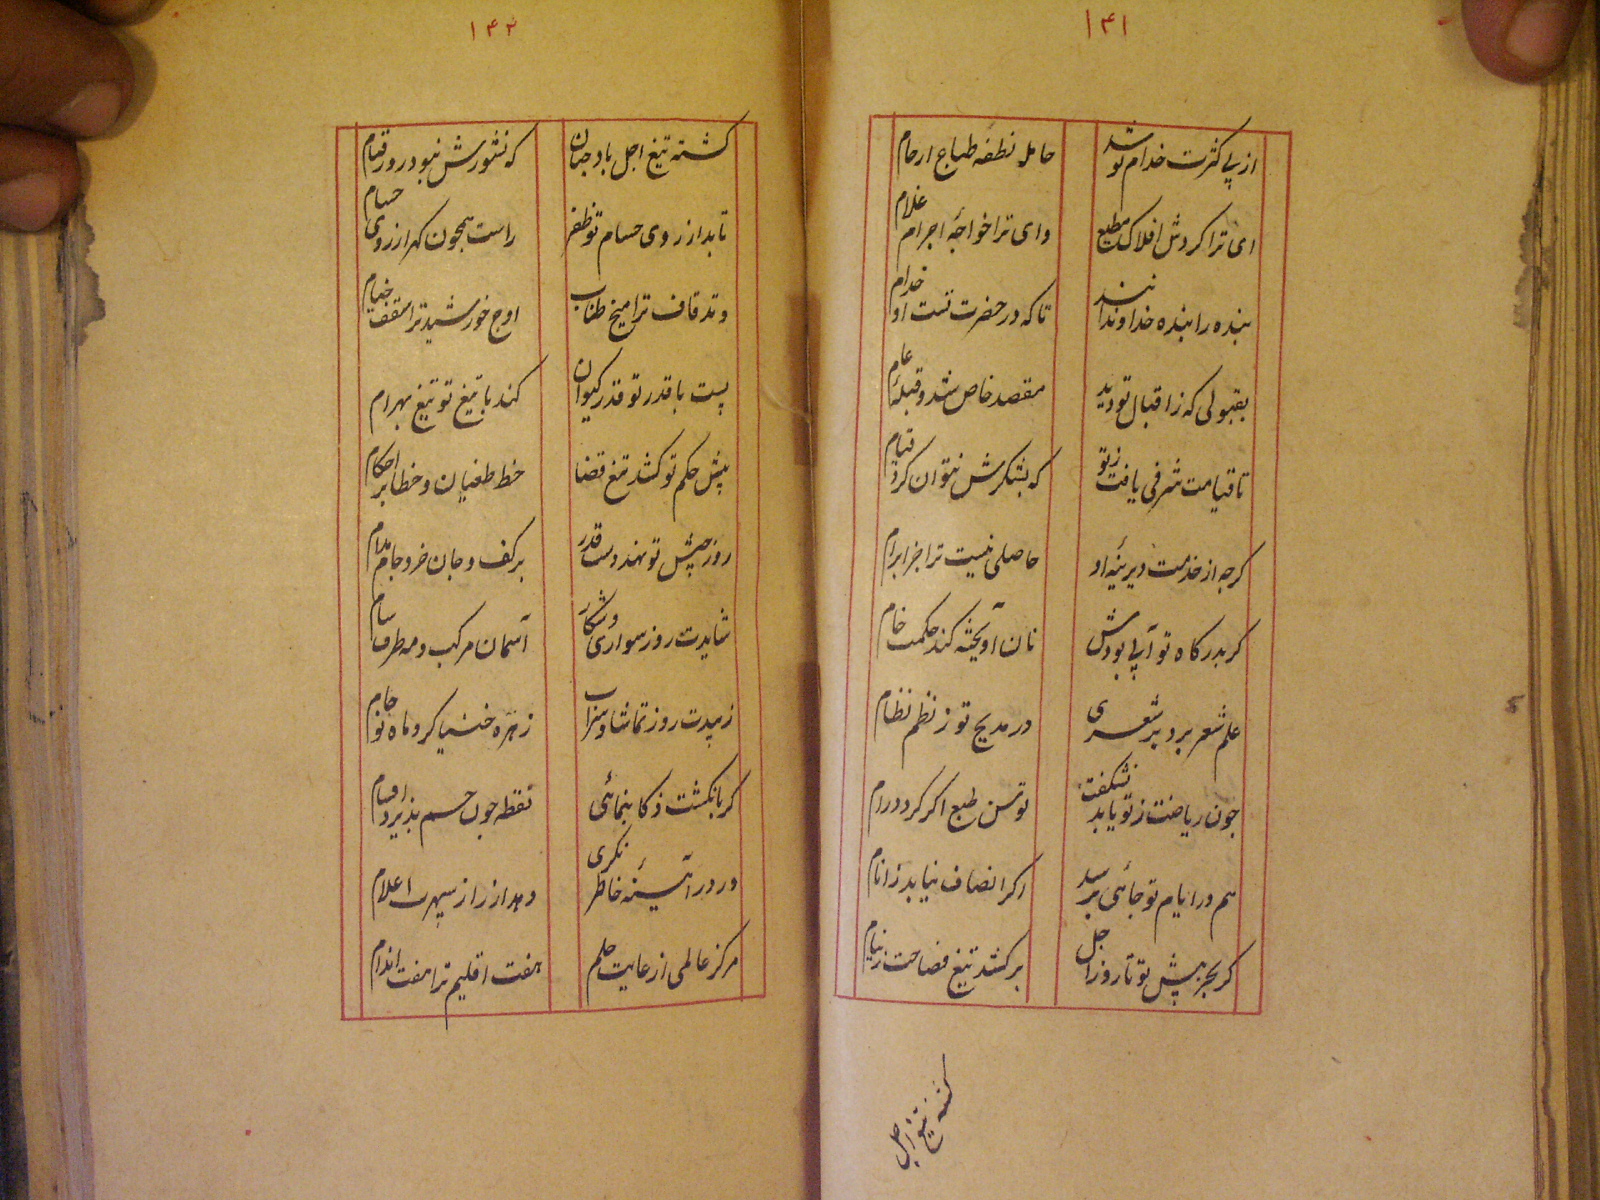 ۱۴۱
از پی کثرت خدام تو شد
حامل نطفه طباع ارحام
ای ترا کردش افلاک مطیع
وای ترا خواجهٔ اجرام غلام
بنده را بنده خداوندانند
تا که در حضرت تست او خدام
بقبولی که ز اقبال تو دید
مقصد خاص شد و قبلهٔ عام
تا قیامت شرفی یافت ز تو
که بشکرش نتوان کرد قیام
کرچه از خدمت دیرینهٔ او
حاصلی نیست ترا جز ابرام
کر بدرکاه تو آبی بودش
نان آویخته کند حکمت خام
علم شعر برد بر شعری
در مدیح تو ز نظم نظام
چون ریاضت ز تو یابد نشکفت
توسن طبع اکر کردد رام
هم در ایام تو جائی برسد
اکر انصاف بیابد ز انام
کر بجز پیش تو تا روز اجل
برکشد تیغ فصاحت ز نیام
کشته تیغ اجل
۱۴۲
کشته تیغ اجل باد چنان
که نشورش نبود روز قیام
تابد از روی حسام تو ظفر
راست همچون کهر از روی حسام
وتد قاف ترا میخ طناب
اوج خورشید ترا سقف خیام
پست با قدر تو قدر کیوان
کند با تیغ تو تیغ بهرام
پیش حکم تو کشد تیغ قضا
خط طغیان و خطا بر احکام
روز جیش تو نهد دست قدر
بر کف و جان خرد جام مدام
شایدت روز سواری و شکار
آسمان مرکب و مه طرف سام
زیبدت روز تماشا و شراب
زهره خنیاکر و ماه نو جام
کر بانکشت ذکا بنمائی
نقطه چون جسم پذیرد اقسام
ور در آئینه خاطر نکری
دهد از راز سپهرت اعلام
مرکز عالمی از غایت حلم
هفت اقلیم ترا هفت اندام